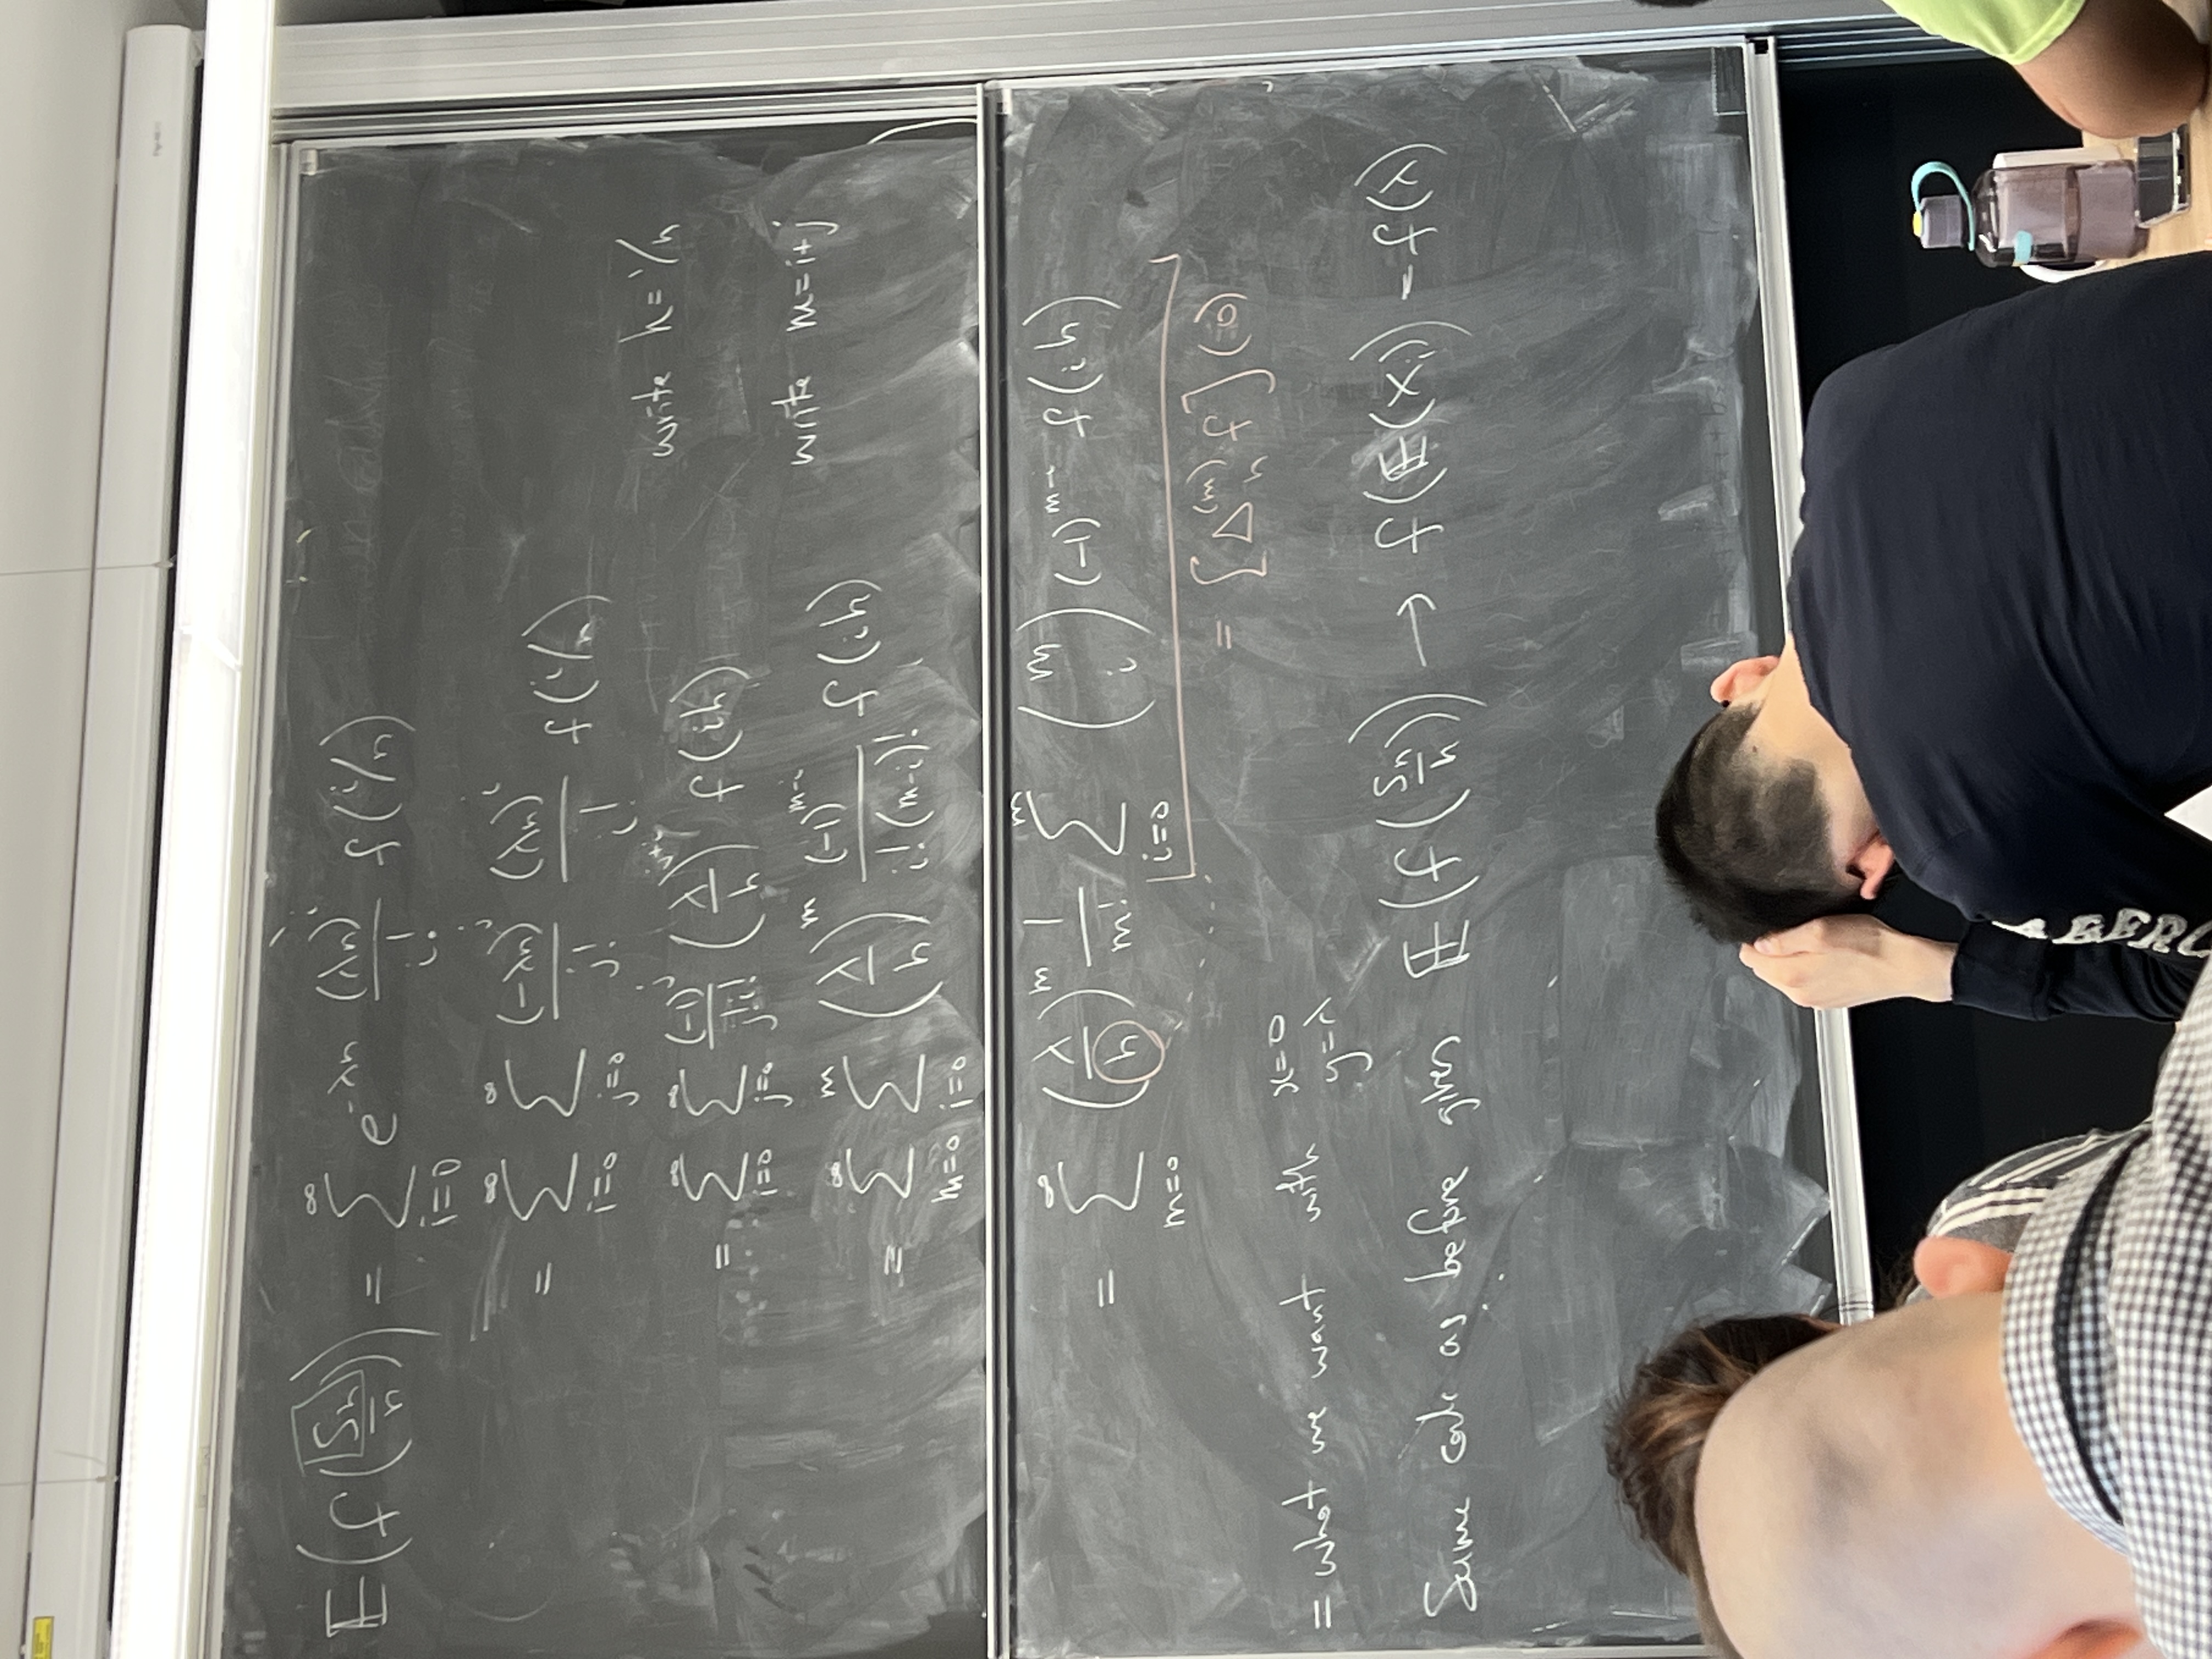 E(f(Sn/n)) = ∑_{i=0}^{∞} e^{-λn} (λn)^i / i! f(i/n)
= ∑_{i=0}^{∞} ∑_{j=0}^{∞} (-λn)^j / j! (λn)^i / i! f(i/n)
write h = 1/n
= ∑_{i=0}^{∞} ∑_{j=0}^{∞} (-1)^j / j! i! (λ/h)^{j+i} f(ih)
write m = i+j
= ∑_{m=0}^{∞} ∑_{i=0}^{m} (λ/h)^m (-1)^{m-i} / i!(m-i)! f(ih)
= ∑_{m=0}^{∞} (λ/h)^m 1/m! ∑_{i=0}^{m} (m i) (-1)^{m-i} f(ih)
= [Δ_h^{(m)} f](0)
= what we want with x=0 y=λ
Same calc as before gives E(f(Sn/n)) → f(E(X_i)) = f(λ)